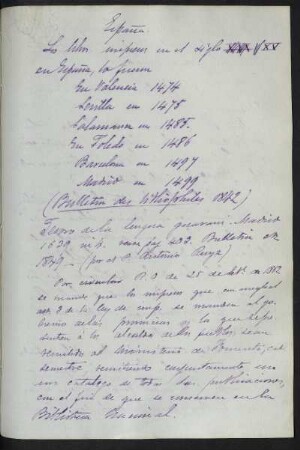 España
Los libros impresos en el siglo XV
en España, lo fueron
En Valencia 1474
Sevilla en 1478
Salamanca en 1485.
En Toledo en 1486
Barcelona en 1497
Madrid en 1499
(Bulletin des bibliophiles 1842)
Tesoro de la lengua guarani Madrid
1639, in 4.
1849. (por el P. Antonio Ruiz)
Por R. O. de 28 de
se manda que los impresos que con arreglo al
art 3 de la ley de imp. se mandan al go-
bierno de las provincias y los que
senten á los alcaldes de los pueblos, sean
remitidos al Ministerio de Fomento, cada
semestre, remitiendo conjuntamente, un
catalogo de todas las publicaciones,
con el fin de que se conserven en la
Biblioteca Nacional.